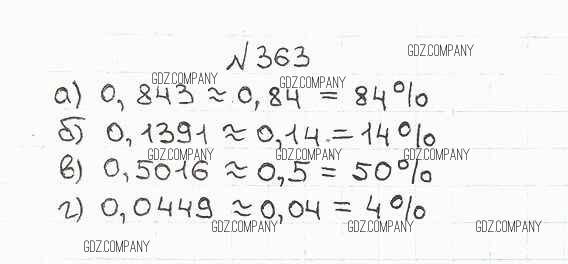 N 363
GDZ.COMPANY
GDZ.COMPANY GDZ.COMPANY
а) 0,843 ≈ 0,84 = 84%
б) 0,1391 ≈ 0,14 = 14%
GDZ.COMPANY GDZ.COMPANY GDZ.COMPANY
в) 0,5016 ≈ 0,5 = 50%
г) 0,0449 ≈ 0,04 = 4%
GDZ.COMPANY GDZ.COMPANY GDZ.COMPANY
GDZ.COMPANY